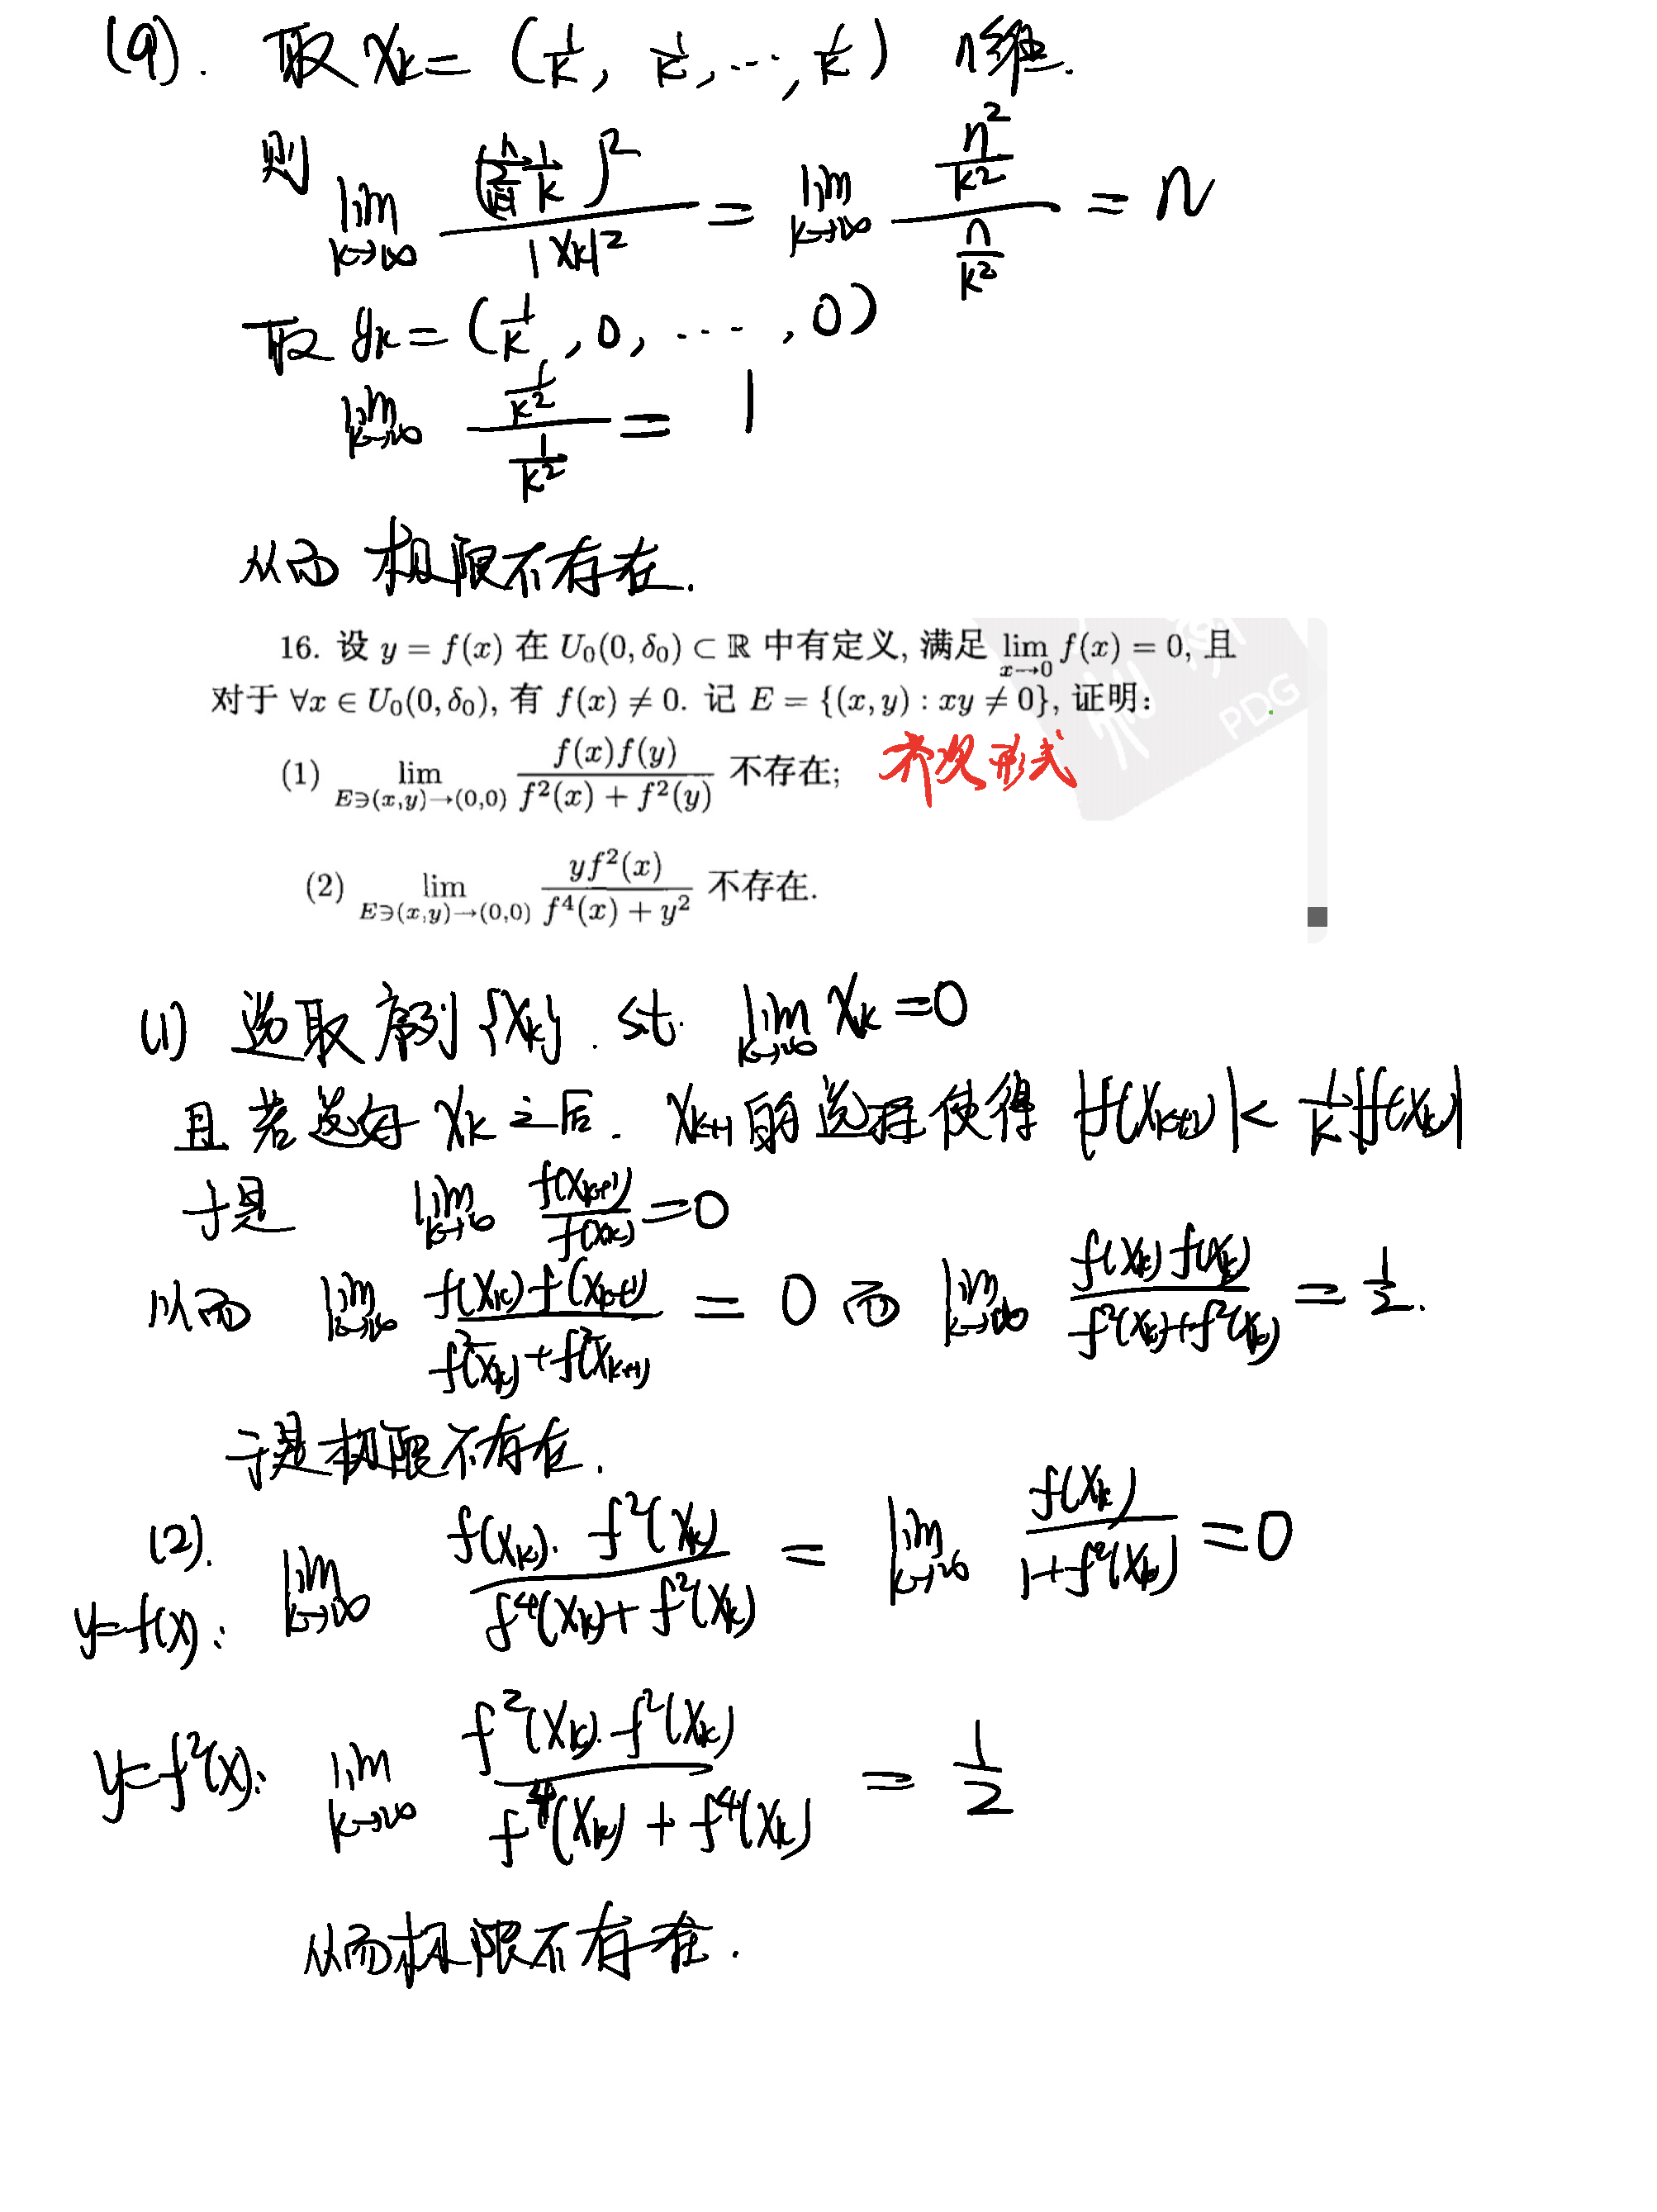 (9). 取 x_k = (1/k, 1/k, ..., 1/k) n维.
则 lim_{k→∞} (∑_{i=1}^{n} 1/k)^2 / |x_k|^2 = lim_{k→∞} (n^2/k^2) / (n/k^2) = n
取 y_k = (1/k, 0, ..., 0)
lim_{k→∞} (1/k^2) / (1/k^2) = 1
从而 极限不存在.
16. 设 y = f(x) 在 U_0(0, δ_0) ⊂ ℝ 中有定义, 满足 lim_{x→0} f(x) = 0, 且
对于 ∀x ∈ U_0(0, δ_0), 有 f(x) ≠ 0. 记 E = {(x, y) : xy ≠ 0}, 证明:
(1) lim_{E∋(x,y)→(0,0)} f(x)f(y) / (f^2(x) + f^2(y)) 不存在; 齐次形式
PDG
(2) lim_{E∋(x,y)→(0,0)} yf^2(x) / (f^4(x) + y^2) 不存在.
(1) 选取序列 {x_k}. st. lim_{k→∞} x_k = 0
且若选好 x_k 之后. x_{k+1} 的选择使得 |f(x_{k+1})| < 1/k |f(x_k)|
于是 lim_{k→∞} f(x_{k+1}) / f(x_k) = 0
从而 lim_{k→∞} f(x_k) f(x_{k+1}) / (f^2(x_k) + f^2(x_{k+1})) = 0 而 lim_{k→∞} f(x_k) f(x_k) / (f^2(x_k) + f^2(x_k)) = 1/2.
于是极限不存在.
(2). y=f(x): lim_{k→∞} f(x_k)·f^2(x_k) / (f^4(x_k) + f^2(x_k)) = lim_{k→∞} f(x_k) / (1+f^2(x_k)) = 0
y=f^2(x): lim_{k→∞} f^2(x_k)·f^2(x_k) / (f^4(x_k) + f^4(x_k)) = 1/2
从而极限不存在.